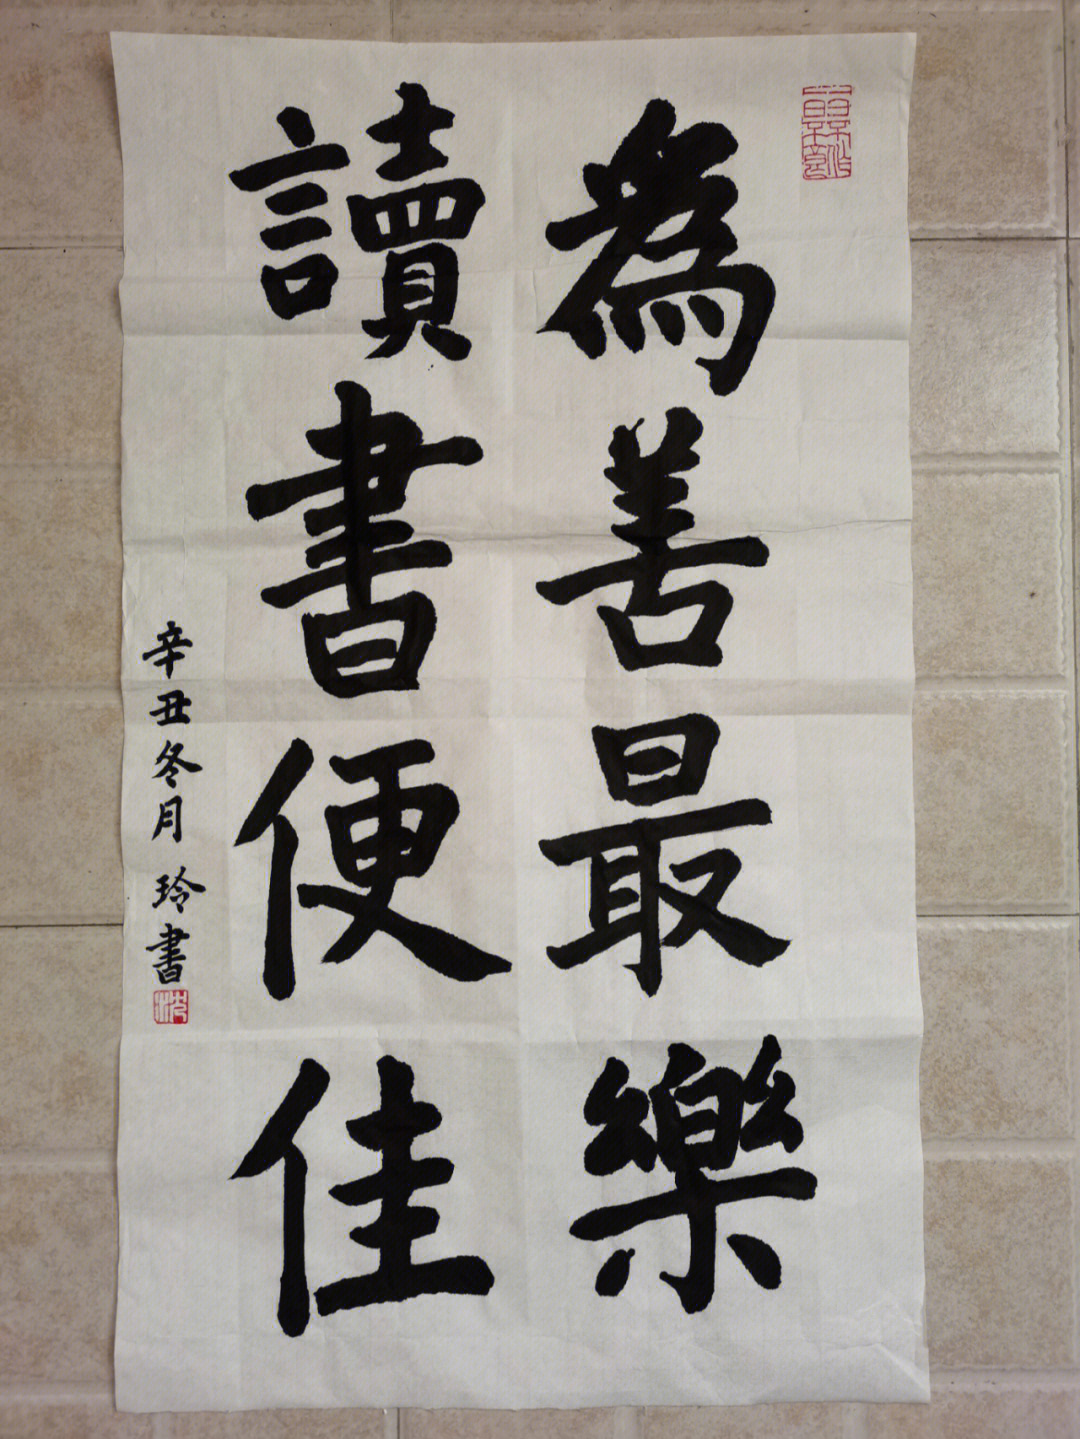 為善最樂
讀書便佳
辛丑冬月 玲書
沈